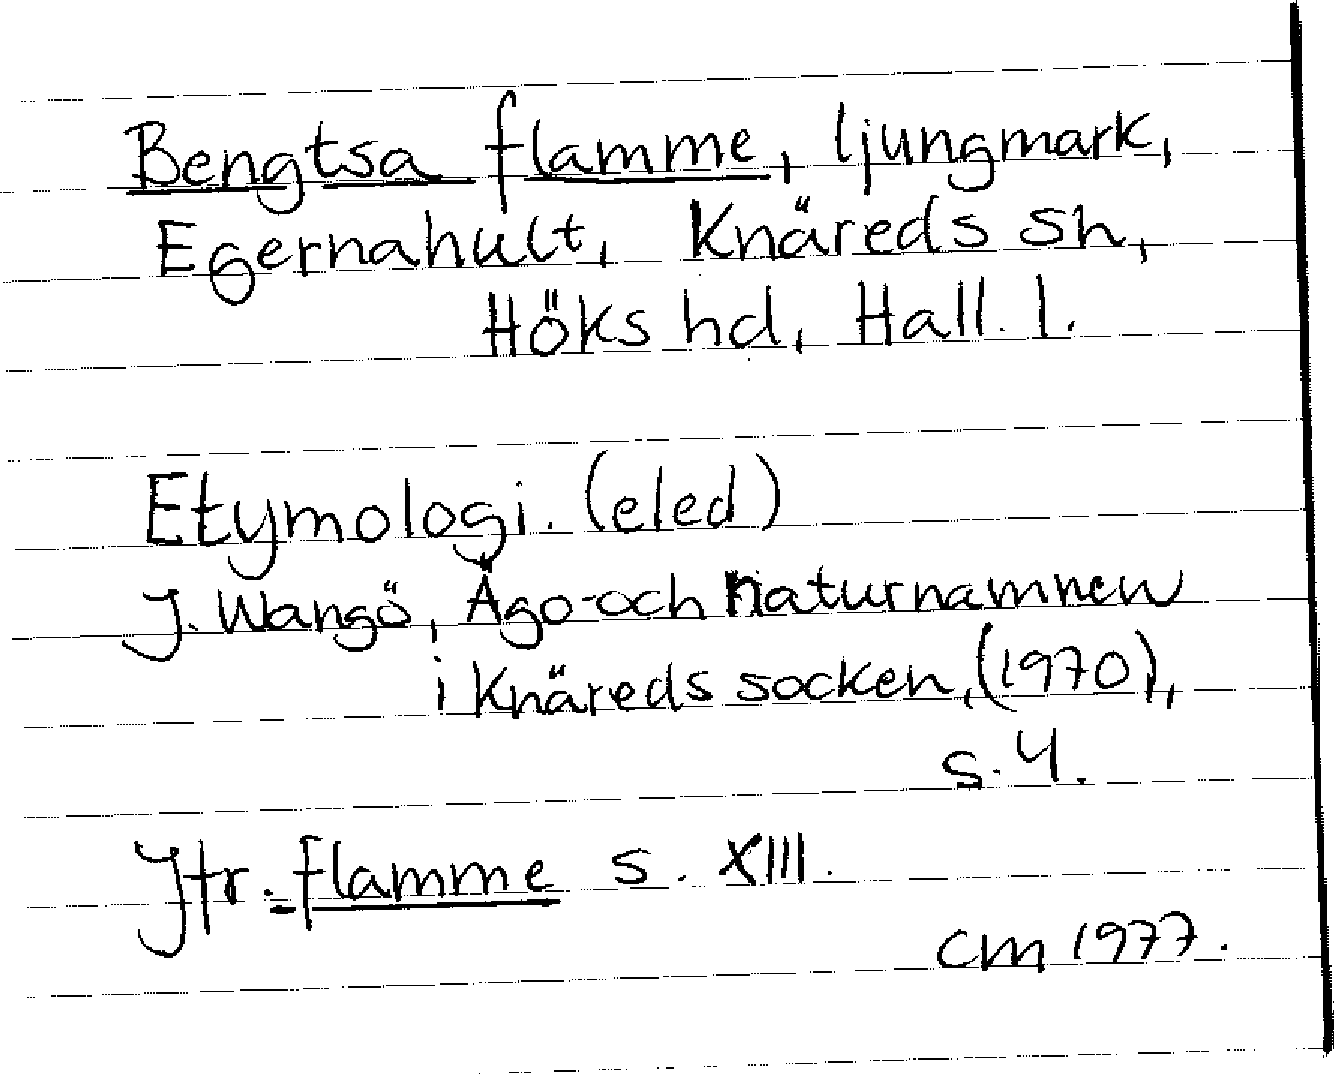 Bengtsa flamme, ljungmark,
Egernahult, Knäreds sn,
Höks hd, Hall. l.
Etymologi. (eled)
J. Wangö, Ägo- och naturnamnen
i Knäreds socken, (1970),
s. 4.
Jfr. flamme s. XIII.
CM 1977.